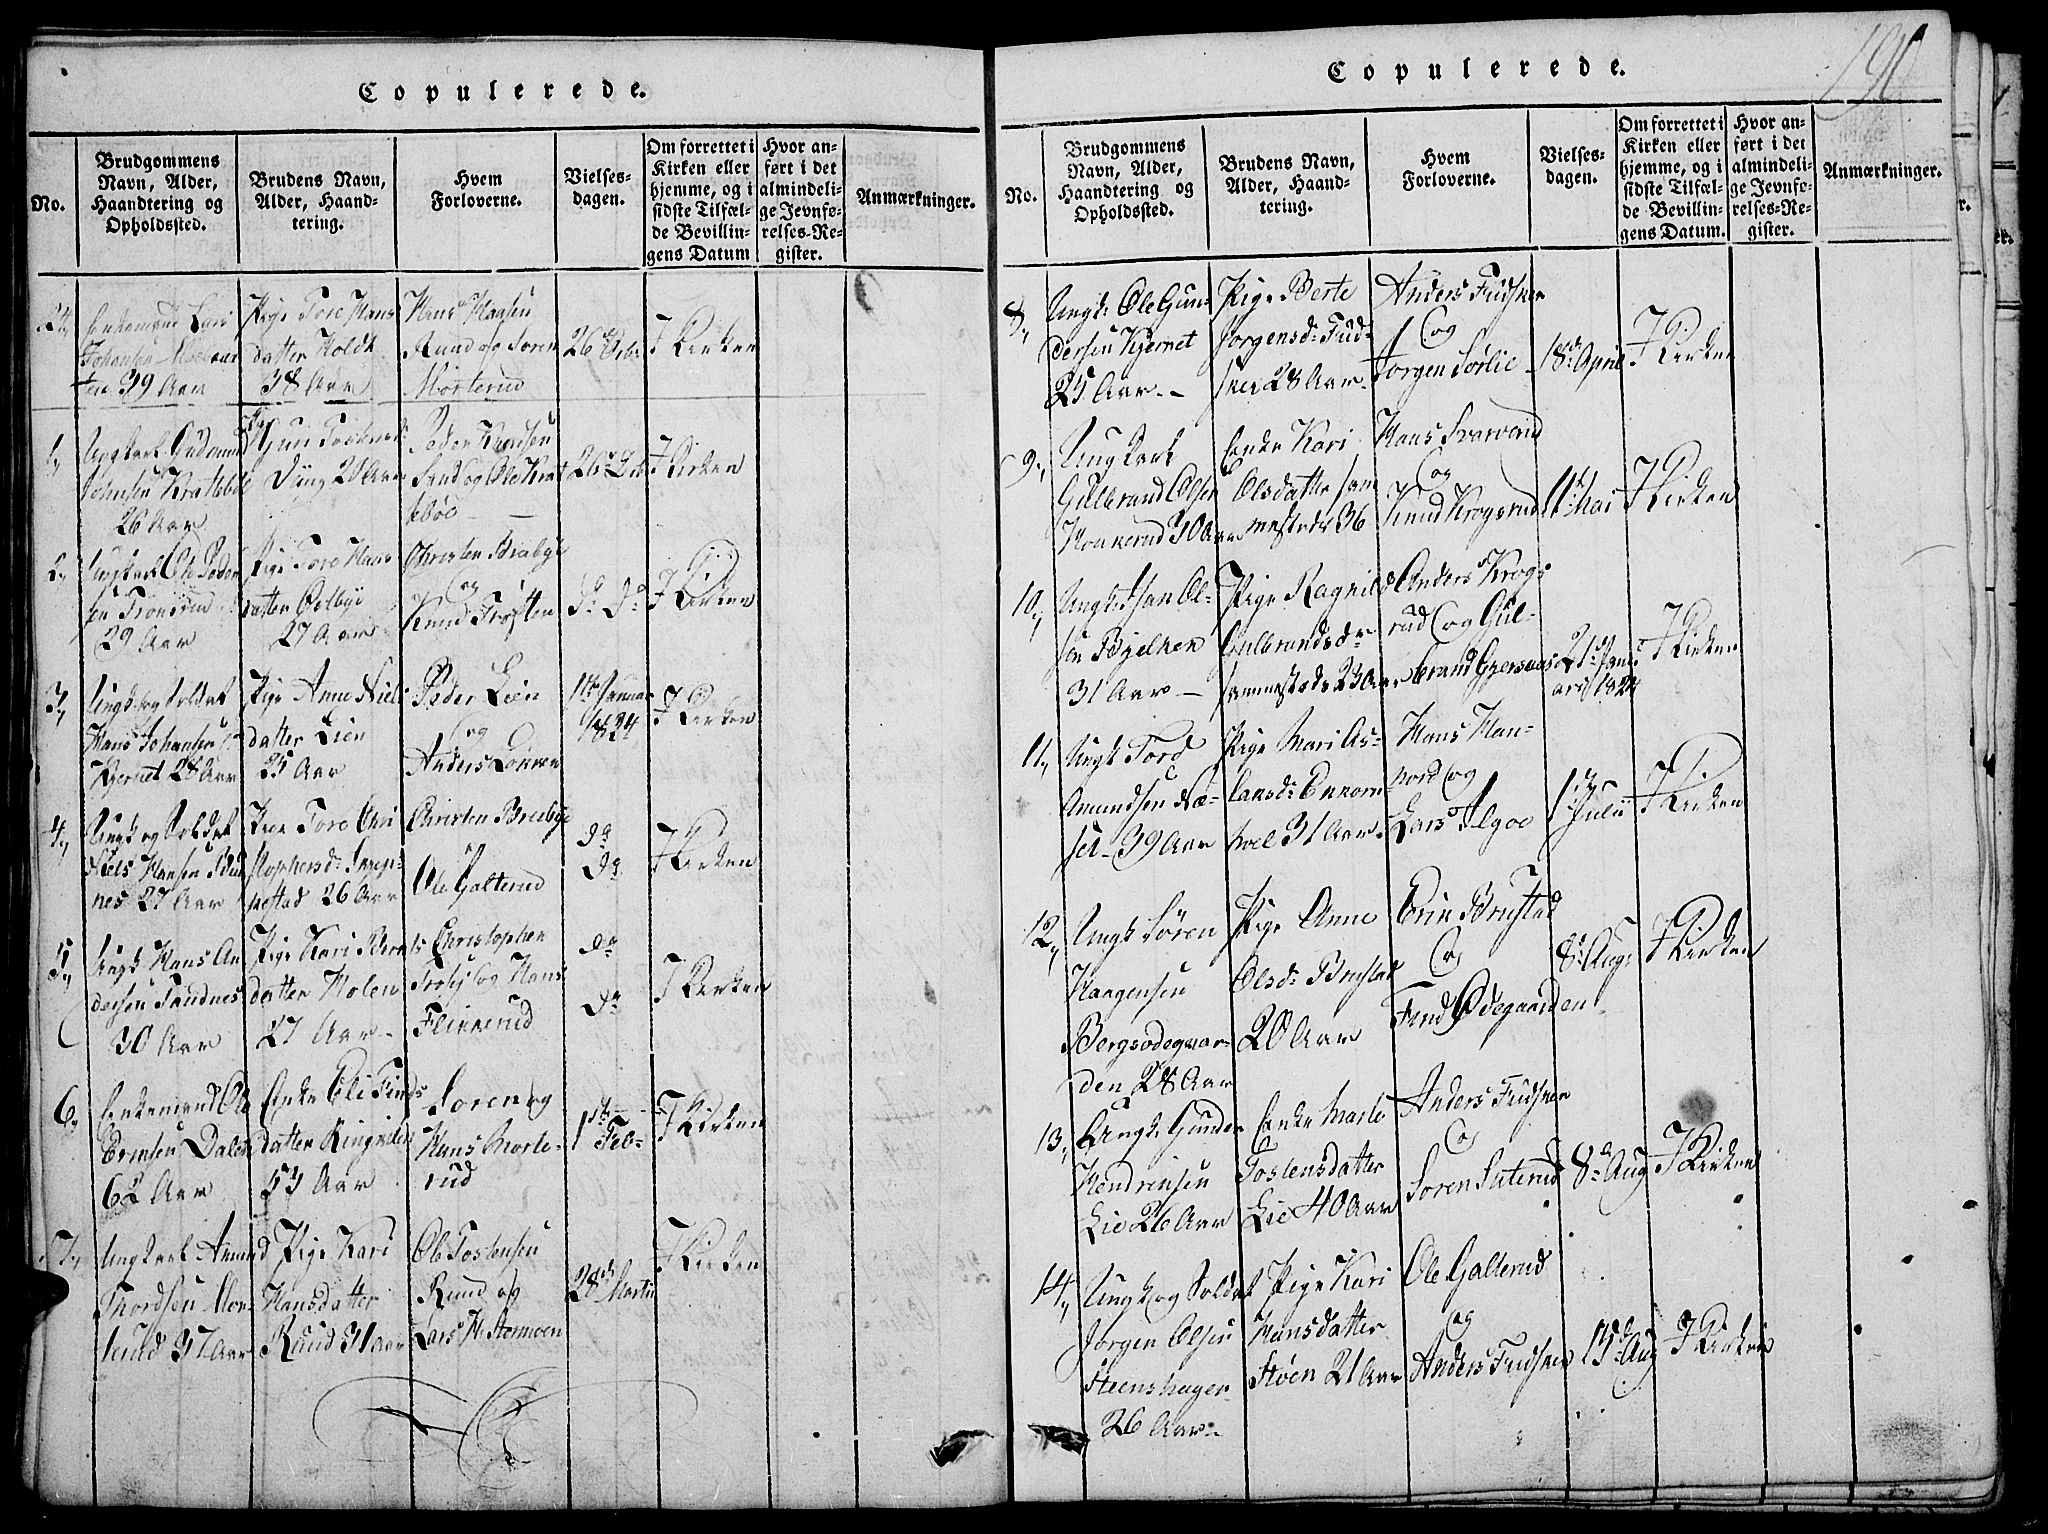 190
Copulerede.
No.
Brudgommens
Navn, Alder,
Haandtering og
Opholdssted.
Brudens Navn,
Alder, Haand-
tering.
Hvem
Forloverne.
Vielses-
dagen.
Om forrettet i
Kirken eller
hjemme, og i
sidste Tilfæl-
de Bevillin-
gens Datum
Hvor an-
ført i det
almindeli-
ge Jevnfø-
relses-Re-
gister.
Anmærkninger.
24,
Enkemand Lars
Johansen
39 Aar
Pige Tore Hans
datter Holdt
38 Aar
Hans Hansen
Ruud og Soren
Morterud
26 Octr
I Kirken
1,
Ungkarl Gudmund
Johnsen Kratteböe
26 Aar
Guri
20 Aar
Peder Knudsen
og Ole Krat
teböe
26
I Kirken
2,
Ungkarl Ole Peder
sen
29 Aar
Pige Tore Hans
datter
27 Aar
Christen Brabye
og
Knud Trosten
Do Do
I Kirken
3,
Ungk og Soldat
Hans Johansen
Kjernet 28 Aar
Pige Anne Niels
datter Lien
25 Aar
Peder Lien
og
Anders Lokken
1ste Januar
1824
I Kirken
4,
Ungk og Soldat
Niels Hansen
nes 27 Aar
Tore Chri
stophersd:
26 Aar
Christen Brubye
Ole Galterud
Do
Do
I Kirken
5,
Ungk Hans An
dersen Sandnes
30 Aar
Pige Kari
datter Holen
27 Aar
Christopher
og Hans
Flinkerud
Do
Do
I Kirken
6,
Enkemand Ole
Ericksen Dalen
62 Aar
Enke Eli Finds
datter
53 Aar
Soren og
Hans Morte-
rud
1ste Feb
I Kirken
7,
Ungkarl Amund
Thordsen
37 Aar
Pige Kari
Hansdatter
Ruud 31 Aar
Ole Tostensen
Ruud og
Lars
28de Martii
I Kirken
Copulerede.
No.
Brudgommens
Navn, Alder,
Haandtering og
Opholdssted.
Brudens Navn,
Alder, Haand-
tering.
Hvem
Forloverne.
Vielses-
dagen.
Om forrettet i
Kirken eller
hjemme, og i
sidste Tilfæl-
de Bevillin-
gens Datum.
Hvor an-
ført i det
almindeli-
ge Jevnfø-
relses-Re-
gister.
Anmærkninger.
8,
Ungk: Ole Gun-
dersen Kjernet
25 Aar
Pige Berte
Jorgensd: Fuds-
ker 28 Aar
Anders Fudsker
og
Jorgen Sorlie
18de April
I Kirken
9,
Ungkarl
Gulbrand Olsen
Honnerud 30 Aar
Enke Kari
Olsdatter sam
mesteds 36
Hans Svarverud
og
Knud Krogsrud
11te Mai
I Kirken
10,
Ungk: Jan Ol-
sen Bjelken
31 Aar
Pige Ragnild
Gulbrandsdr
sammesteds 23 Aar
Anders Krogs
rud og Gul-
brand
21de Janu
arii 1824
I Kirken
11,
Ungk Tord
Amundsen Næ-
set 39 Aar
Pige Mari As-
lansd:
31 Aar
Hans Han-
nord og
Lars Algoe
1te Julii
I Kirken
12,
Ungk Sören
Haagensen
Bergsodegaar-
den 28 Aar
Pige Anne
Olsd: Brustad
20 Aar
Erik Brustad
og
Find Ødegaarden
8de Aug:
I Kirken
13,
Ungk: Gunder
Hendriksen
Lie 26 Aar
Enke Marte
Tostensdatter
Lie 40 Aar
Anders Fudsker
og
Soren Sæterud
8de Aug
I Kirken
14,
Ungk og Soldat
Jorgen Olsen
Steenshagen
26 Aar
Pige Kari
Hansdatter
Støen 21 Aar
Ole Galterud
og
Anders Fudsker
15de Aug
I Kirken